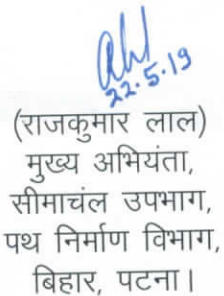 22.5.19
(राजकुमार लाल)
मुख्य अभियंता,
सीमाचंल उपभाग,
पथ निर्माण विभाग,
बिहार, पटना।